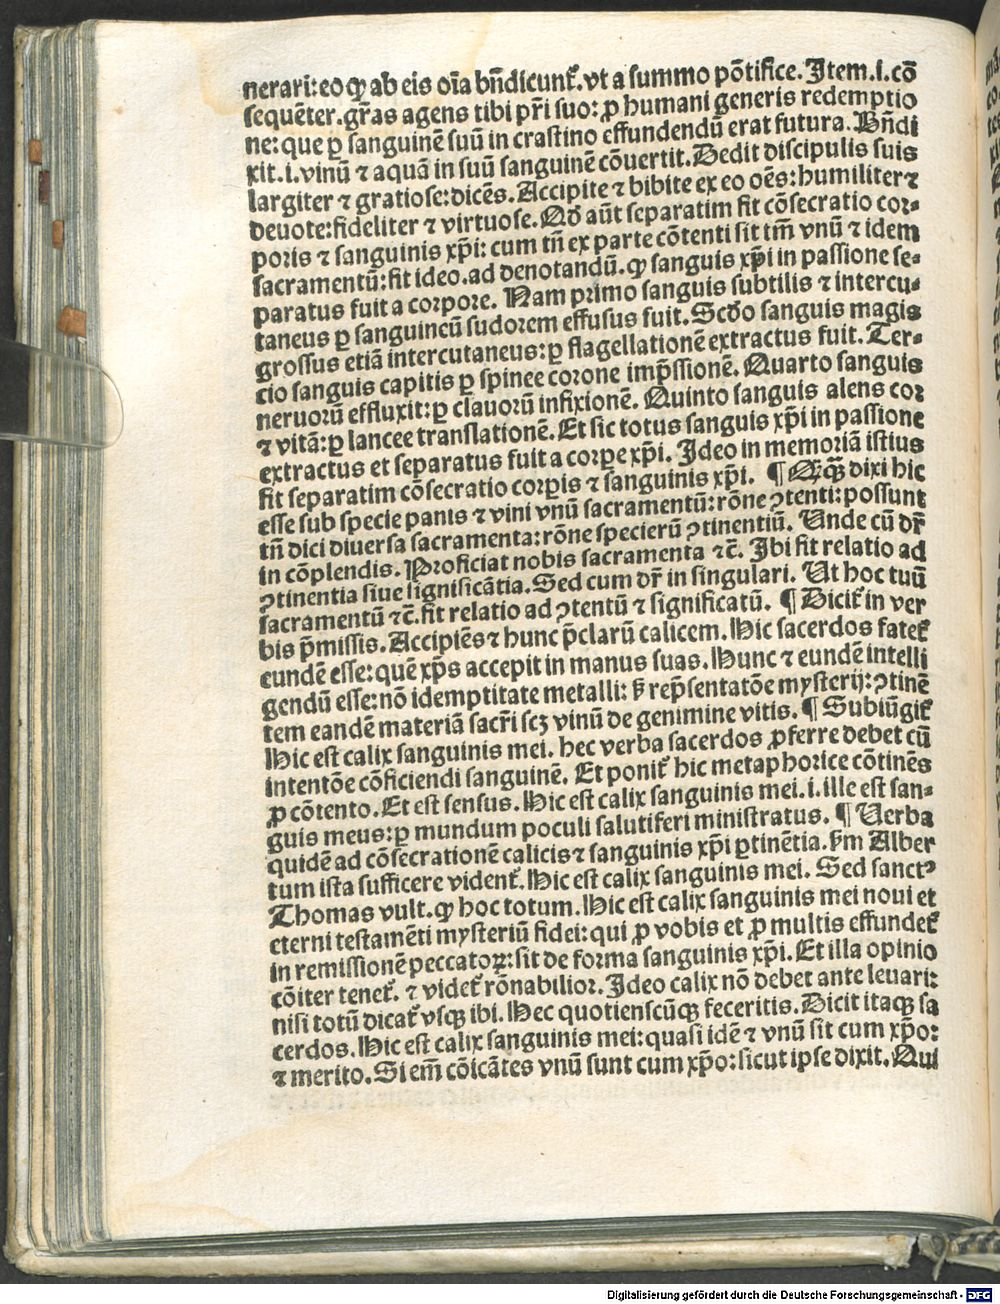 nerari: eo qꝫ ab eis oīa bn̄dicunt᷑. vt a summo põtifice. Item .i. cō
sequēter. gr̄as agens tibi pr̄i suo: ꝓ humani generis redemptio
ne: que ꝑ sanguinē suū in crastino effundendū erat futura. Bn̄di
xit .i. vinū ⁊ aquā in suū sanguinē cōuertit. Dedit discipulis suis
largiter ⁊ gratiose: dicēs. Accipite ⁊ bibite ex eo oēs: humiliter ⁊
deuote: fideliter ⁊ virtuose. Qd̄ aūt separatim fit cōsecratio cor⸗
poris ⁊ sanguinis xp̄i: cum tn̄ ex parte cōtenti sit tm̄ vnū ⁊ idem
sacramentū: fit ideo. ad denotandū. qꝫ sanguis xp̄i in passione se⸗
paratus fuit a corpore. Nam primo sanguis subtilis ⁊ intercu⸗
taneus ꝑ sanguineū sudorem effusus fuit. Scd̄o sanguis magis
grossus etiā intercutaneus: ꝑ flagellationē extractus fuit. Ter⸗
cio sanguis capitis ꝑ spinee corone imp̄ssionē. Quarto sanguis
neruorū effluxit: ꝑ clauorū infixionē. Quinto sanguis alens cor
⁊ vitā: ꝑ lancee translationē. Et sic totus sanguis xp̄i in passione
extractus et separatus fuit a corꝑe xp̄i. Ideo in memoriā istius
fit separatim cōsecratio corꝑis ⁊ sanguinis xp̄i. ¶ Qꝙ dixi hic
esse sub specie panis ⁊ vini vnū sacramentū: rōne ꝯtenti: possunt
tn̄ dici diuersa sacramenta: rōne specierū ꝯtinentiū. Unde cū dr̄
in cōplendis. Proficiat nobis sacramenta ⁊c̄. Ibi fit relatio ad
ꝯtinentia siue significātia. Sed cum dr̄ in singulari. Ut hoc tuū
sacramentū ⁊c̄. fit relatio ad ꝯtentū ⁊ significatū. ¶ Dicit᷑ in ver
bis p̄missis. Accipiēs ⁊ hunc p̄clarū calicem. Hic sacerdos fatet᷑
eundē esse: quē xp̄s accepit in manus suas. Hunc ⁊ eundē intelli
gendū esse: nō idemptitate metalli: s̄ rep̄sentatōe mysterij: ꝯtinē
tem eandē materiā sacr̄i scꝫ vinū de genimine vitis. ¶ Subiūgit᷑
Hic est calix sanguinis mei. hec verba sacerdos ꝓferre debet cū
intentōe cōficiendi sanguinē. Et ponit᷑ hic metaphorice cōtinēs
ꝓ cōtento. Et est sensus. Hic est calix sanguinis mei .i. ille est san⸗
guis meus: ꝑ mundum poculi salutiferi ministratus. ¶ Uerba
quidē ad cōsecrationē calicis ⁊ sanguinis xp̄i ꝑtinētia. s̄m Alber
tum ista sufficere vident᷑. Hic est calix sanguinis mei. Sed sanctꝰ
Thomas vult. qꝫ hoc totum. Hic est calix sanguinis mei noui et
eterni testamēti mysteriū fidei: qui ꝓ vobis et ꝓ multis effundet᷑
in remissionē peccatoꝝ: sit de forma sanguinis xp̄i. Et illa opinio
cōiter tenet᷑. ⁊ videt᷑ rōnabilior. Ideo calix nō debet ante leuari:
nisi totū dicat᷑ vsqꝫ ibi. Hec quotienscūqꝫ feceritis. Dicit itaqꝫ sa
cerdos. Hic est calix sanguinis mei: quasi idē ⁊ vnū sit cum xp̄o:
⁊ merito. Si em̄ cōicātes vnū sunt cum xp̄o: sicut ipse dixit. Qui
Digitalisierung gefördert durch die Deutsche Forschungsgemeinschaft - DFG